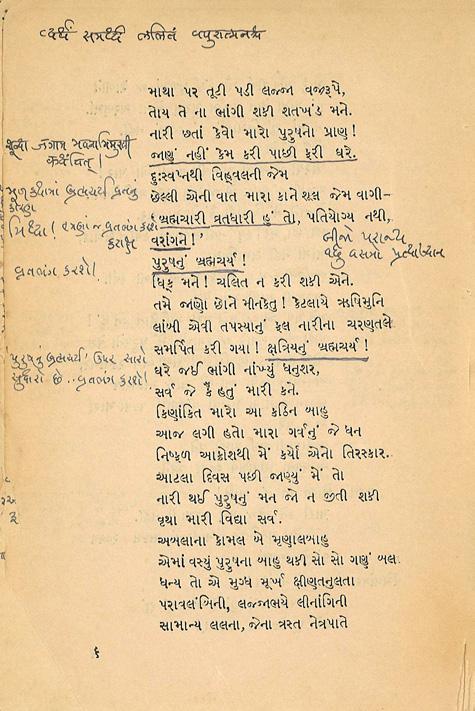 व्यर्थं समर्थ्य ललितं वपुरात्मनश्च
માથા પર તૂટી પડી લજ્જા વજ્રરૂપે,
તોય તે ના ભાંગી શકી શતખંડ મને.
નારી છતાં કેવો મારો પુરુષનો પ્રાણ !
જાણું નહીં કેમ કરી પાછી ફરી ઘરે.
દુઃસ્વપ્નથી વિહ્વલની જેમ
છેલ્લી એની વાત મારા કાને શલ જેમ વાગી–
'બ્રહ્મચારી વ્રતધારી હું તો, પતિયોગ્ય નથી,
વરાંગને !'
પુરુષનું બ્રહ્મચર્ય !
ધિક્ મને ! ચલિત ન કરી શકી એને.
તમે જાણો છોને મીનકેતુ ! કેટલાયે ઋષિમુનિ
લાંબી એવી તપસ્યાનું ફલ નારીના ચરણતલે
સમર્પિત કરી ગયા ! ક્ષત્રિયનું બ્રહ્મચર્ય !
ઘરે જઈ ભાંગી નાંખ્યું ધનુશર,
સર્વ જે કૈં હતું મારી કને.
કિણાંકિત મારો આ કઠિન બાહુ
આજ લગી હતો મારા ગર્વનું જે ધન
નિષ્ફળ આક્રોશથી મેં કર્યો એનો તિરસ્કાર.
આટલા દિવસ પછી જાણ્યું મેં તો
નારી થઈ પુરુષનું મન જો ન જીતી શકી
વૃથા મારી વિદ્યા સર્વ.
અબલાના કોમલ એ મૃણાલબાહુ
એમાં વસ્યું પુરુષના બાહુ થકી સો સો ગણું બલ.
ધન્ય તો એ મુગ્ધ મૂર્ખ ક્ષીણતનુલતા
પરાવલંબિની, લજ્જાભયે લીનાંગિની
સામાન્ય લલના, જેના ત્રસ્ત નેત્રપાતે
૬
शून्या जगाम भवनाभिमुखी
कथंचित् !
મૂળ કથામાં બ્રહ્મચર્ય વ્રતનું
મિથ્યા !
વ્રતભંગ કરશે !
પુરુષનું બ્રહ્મચર્ય ! ઉપર સારો
વ્રતભંગ કરશે !